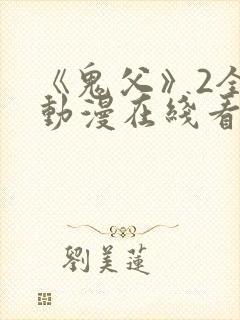 《鬼父》2全
動漫在綫看
劉美蓮